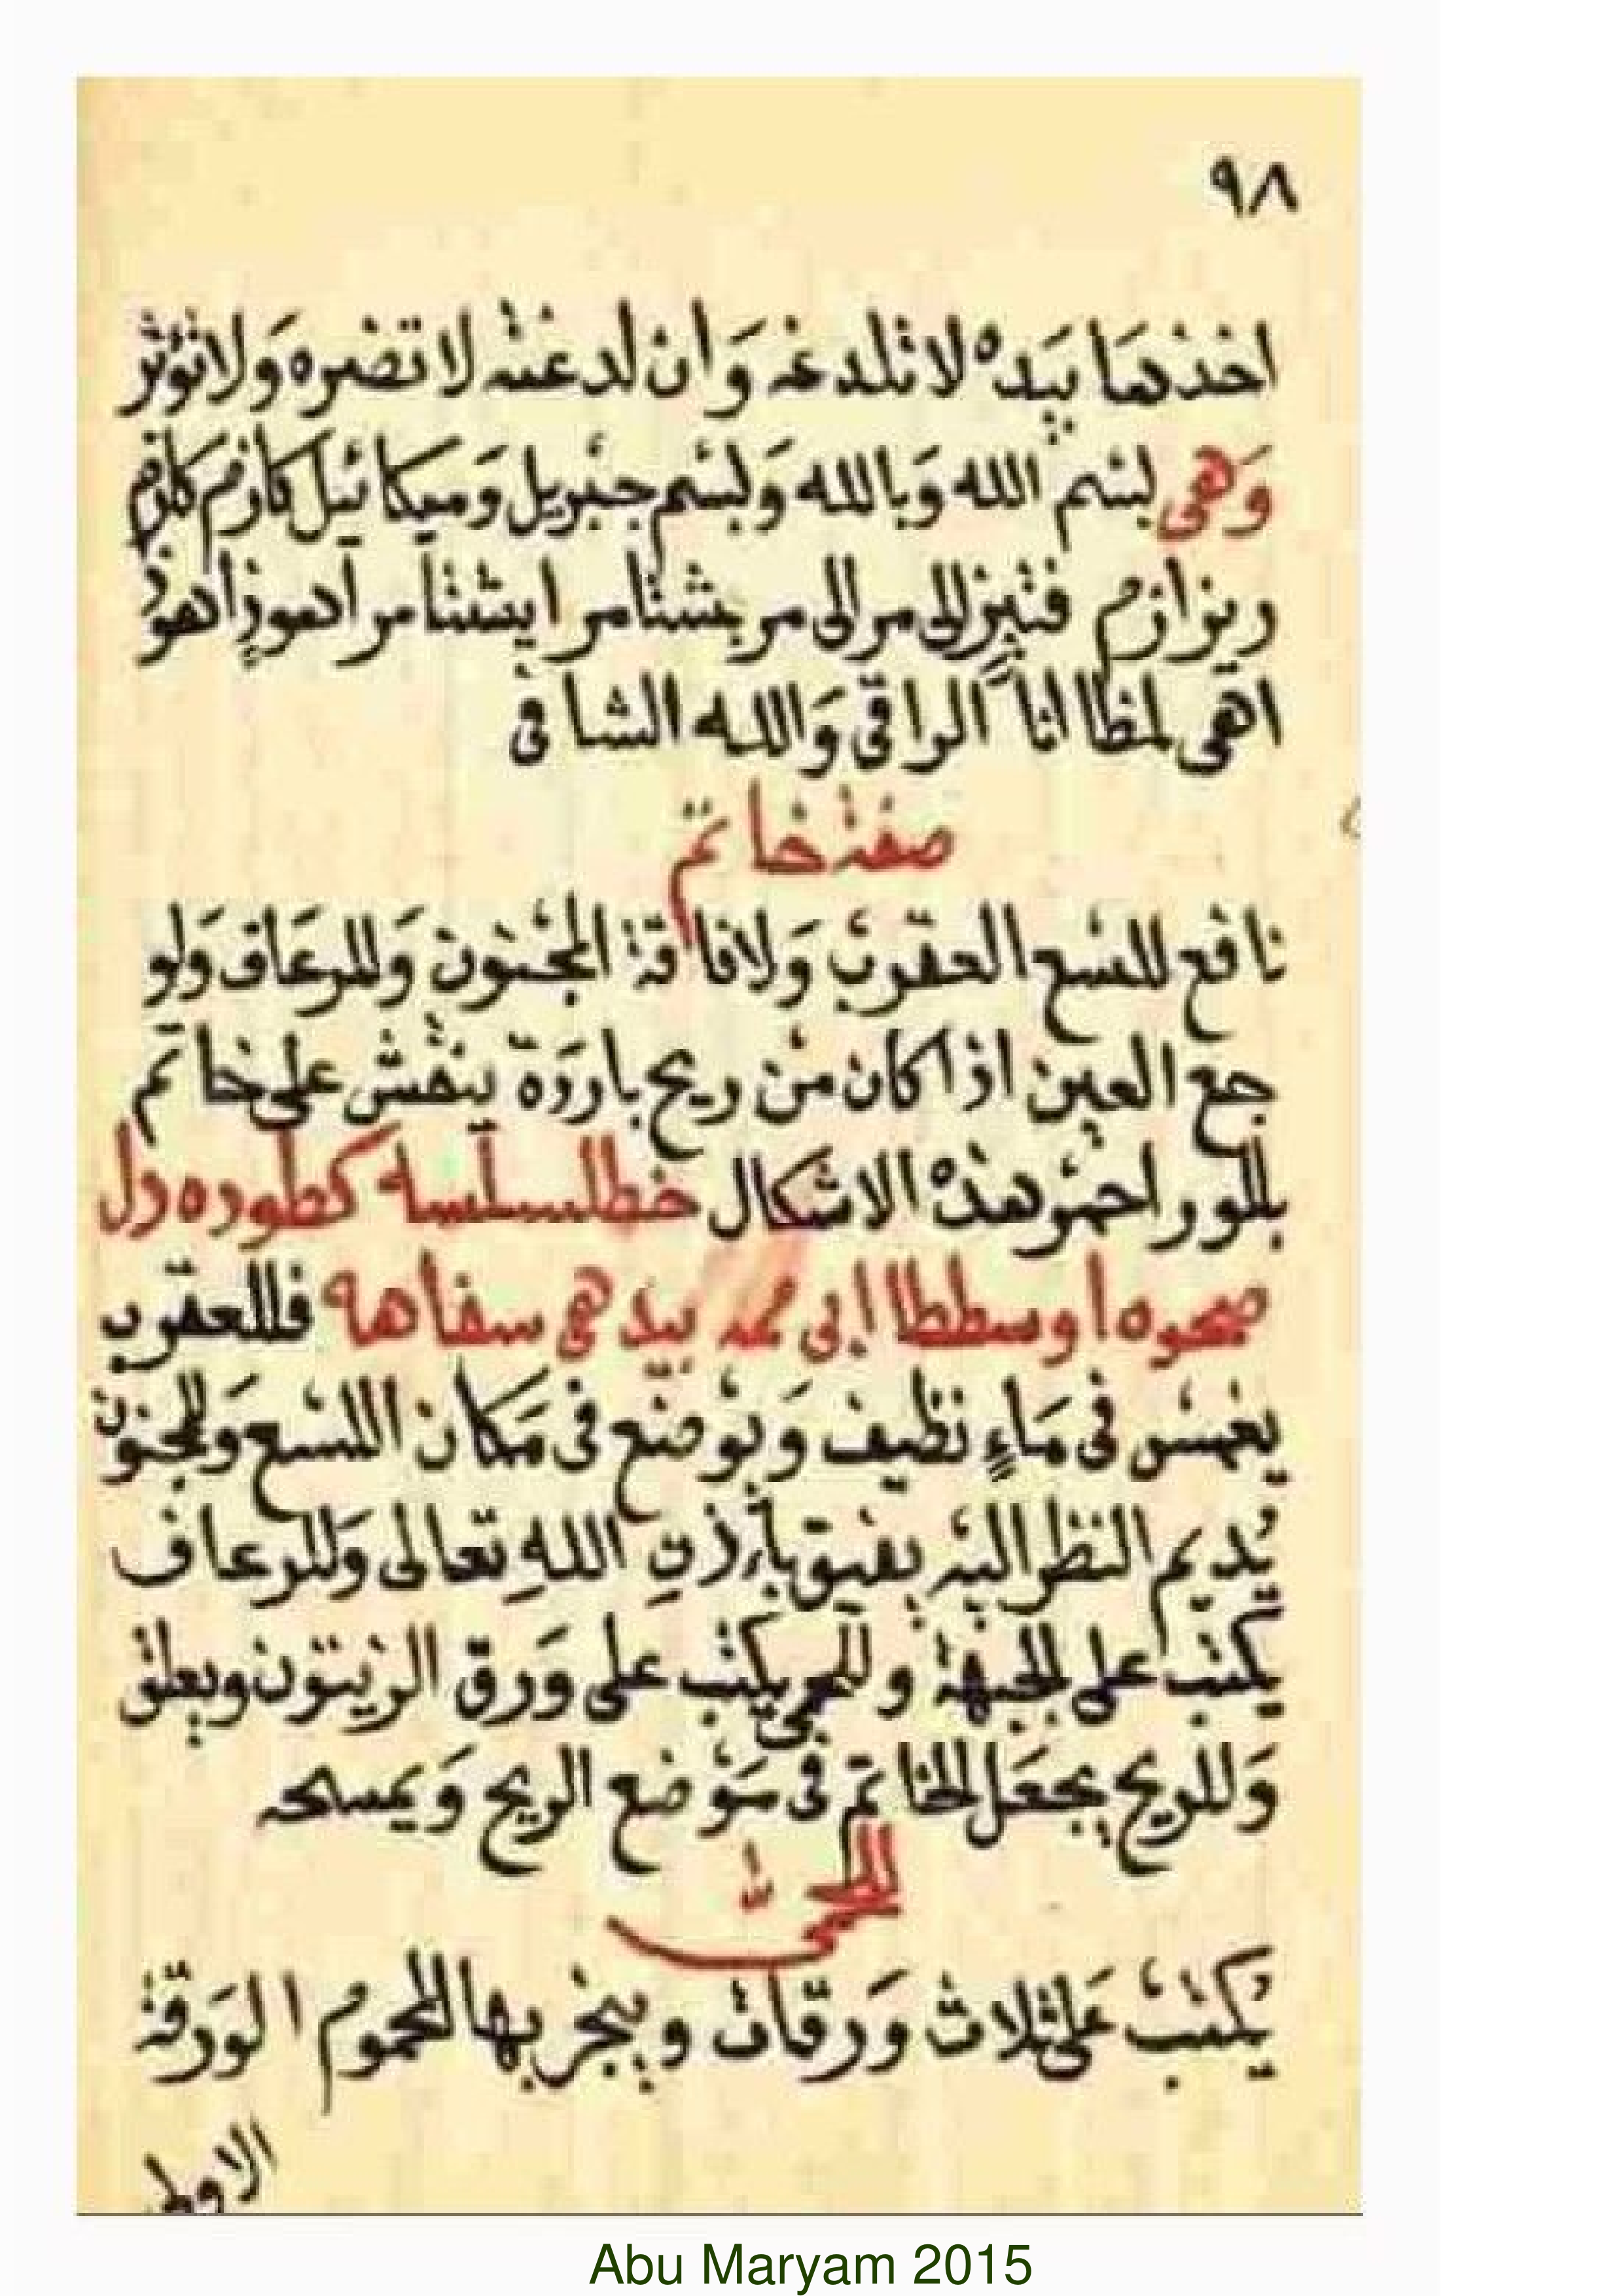 ٩٨
اخذها بيده لا تلدغه وَان لدغته لا تضره وَلا تؤثر
وَهى بسم الله وَبالله وَبسم جبريل وَميكائيل كازم كازم
ريزازم فتيز الى مر الى مر بشتامرا يشتامرا هوزاهوز
اهى لمظا انا الراقى وَالله الشافى
صفة خاتم
نافع للسع العقرب وَلافاقة المجنون وَللرعاف وَلو
جع العين اذا كان من ريح باردَة ينقش على خاتم
بللور احمر هذه الاشكال خطلسلسه كطوده دل
صحوه اوسططا ابى محمه بيد هى سفاهه فللعقرب
يغمس فى مَاءٍ نظيف وَيوضع فى مَكان اللسع وَللمجنون
يُديم النظر اليه يفيق بإذنِ اللهِ تعالى وَللرعاف
يكتب على الجبهة وللحمى يكتب على وَرق الزيتون ويعلق
وَللريح يجعَل الخاتم فى مَوضع الريح وَيمسحه
للحمى
يكتب على ثلاث وَرقات ويبخر بها المحموم الوَرقة
الاولى
Abu Maryam 2015